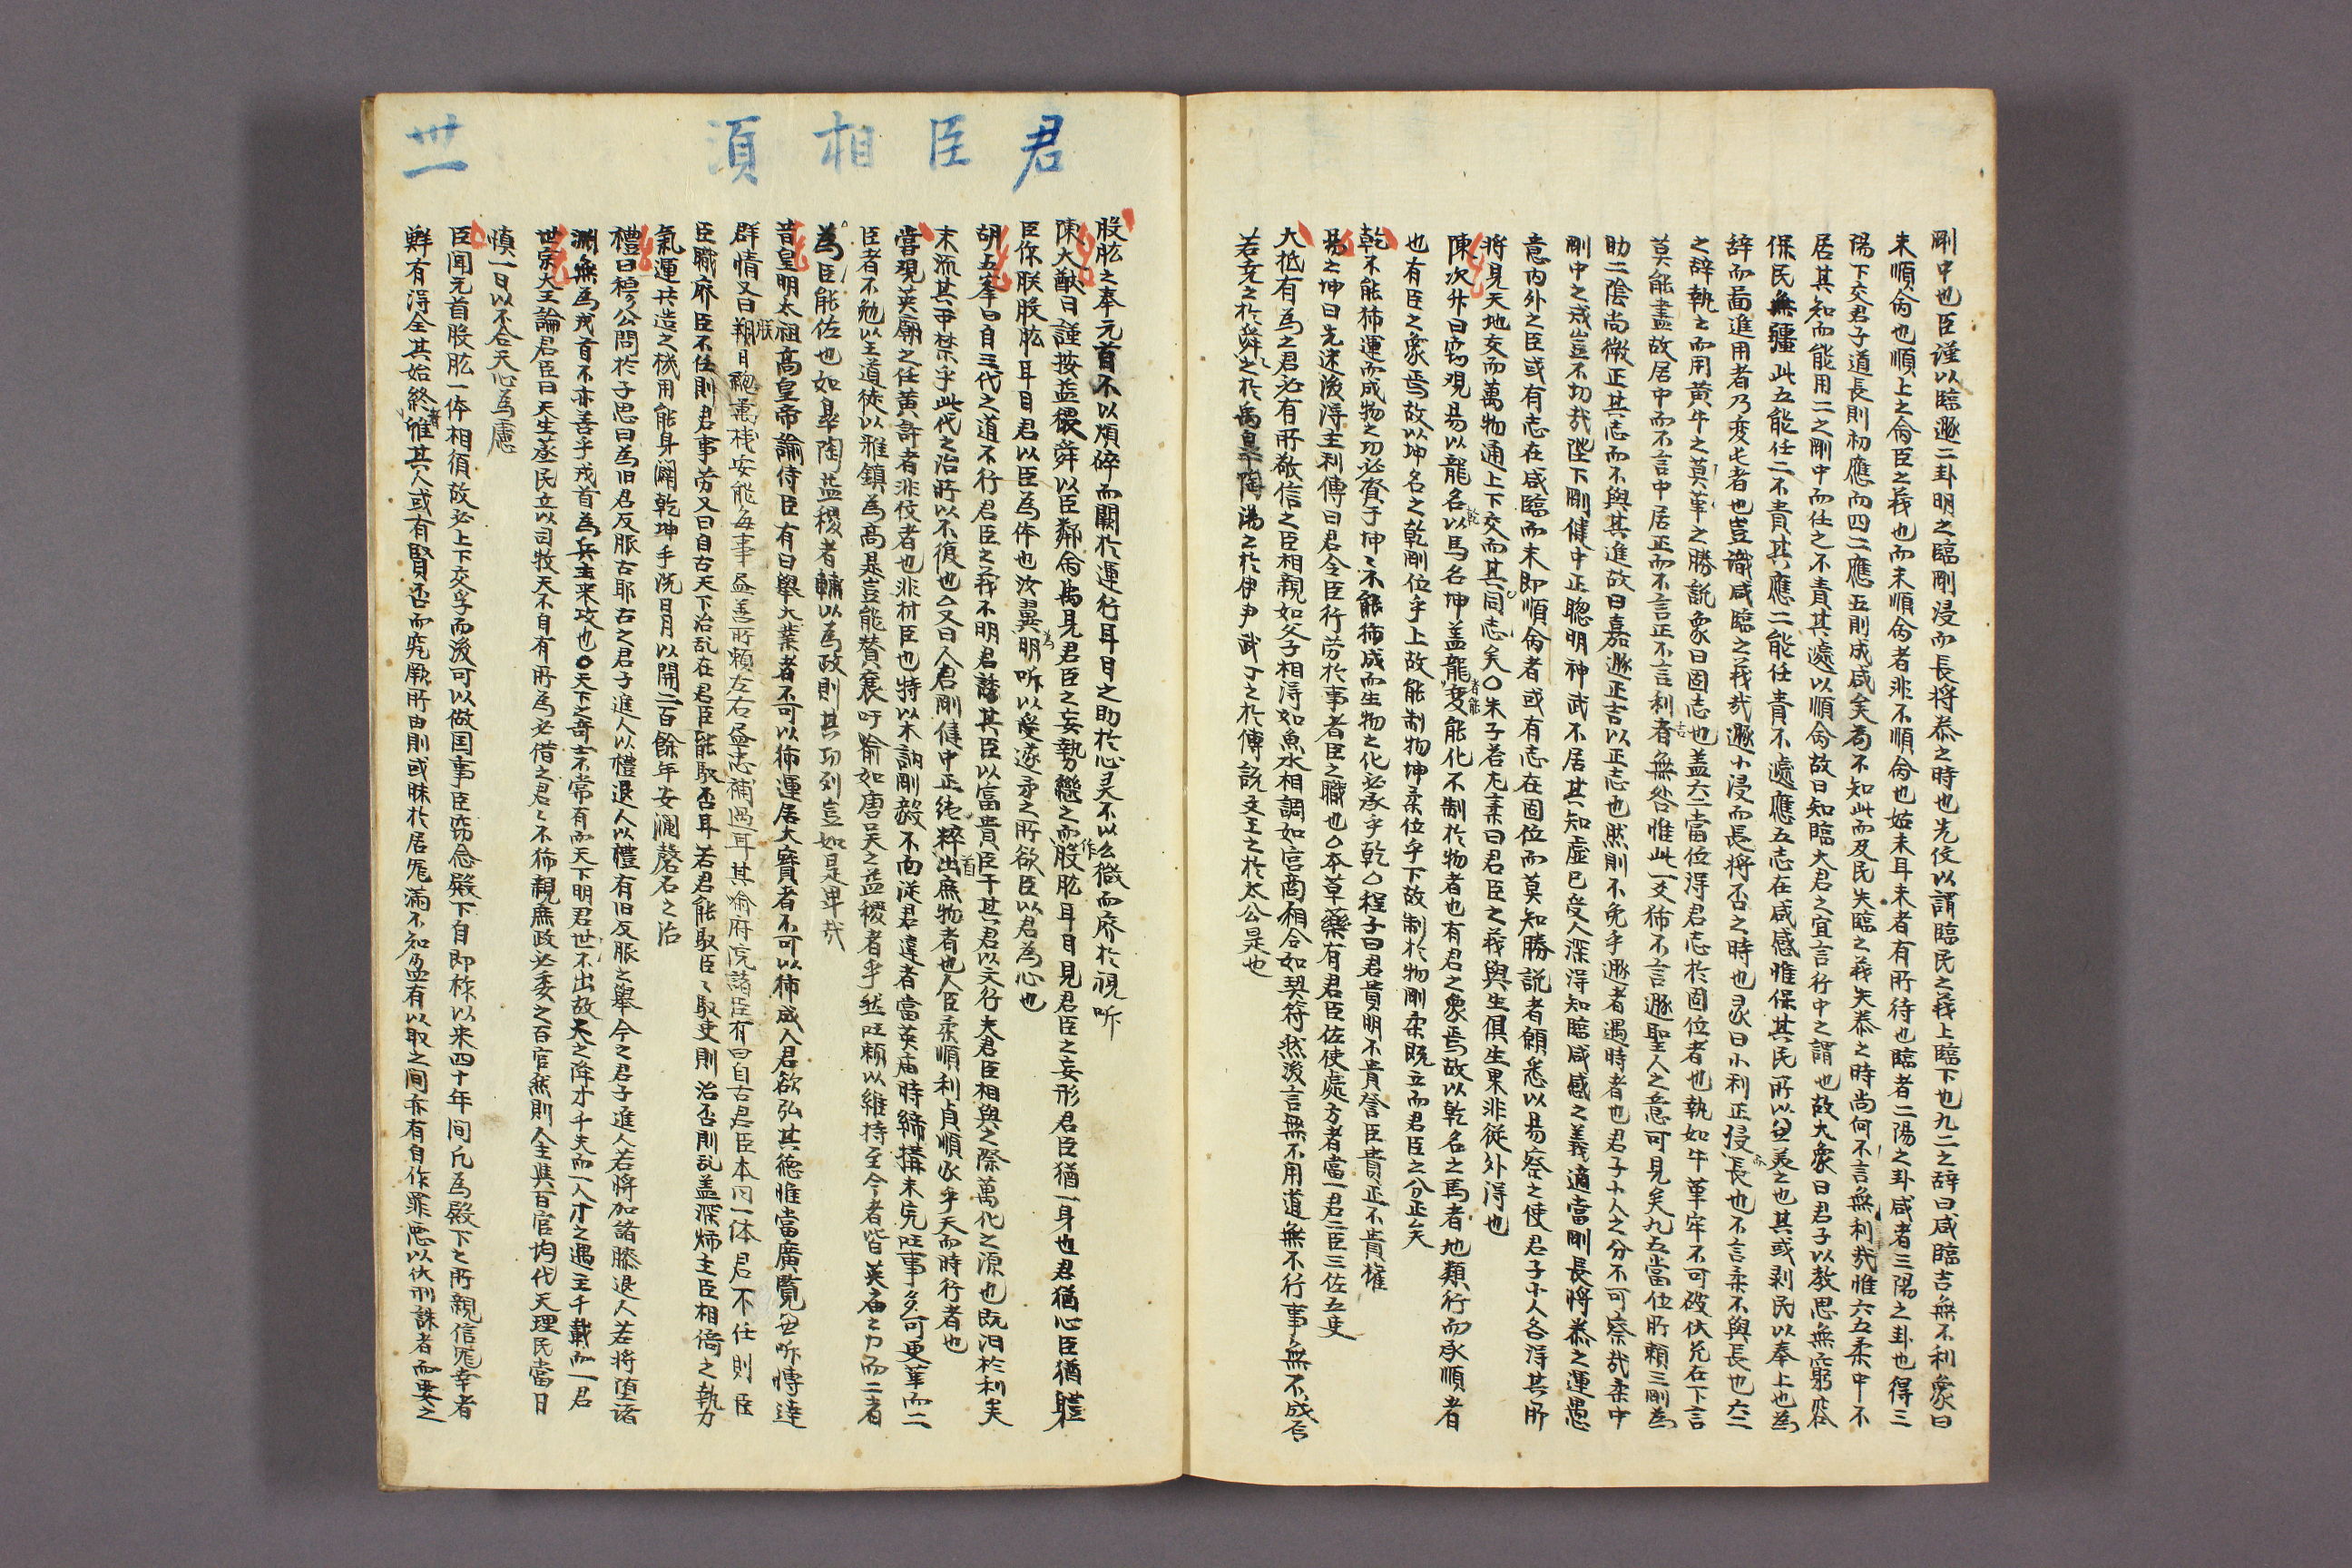 剛中也臣謹以臨遯二卦明之臨剛浸而長將泰之時也先儒以謂臨民之義上臨下也九二之辞曰咸臨吉無不利象曰
未順命也順上之命臣之義也而未順命者非不順命也姑未耳未者有所待也臨者二陽之卦咸者三陽之卦也得三
陽下交君子道長則初應而四二應五則成咸矣苟不知此而及民失臨之義失泰之時尚何不言無利哉惟六五柔中不
居其知而能用二之剛中而任之不責其遠以順命故曰知臨大君之宜言行中之謂也故大象曰君子以教思無窮容
保民無疆此五能任二不責其應二能任責不遠應五志在咸感惟保其民所以
辞而苗進用者乃変
之辞執之而用黄牛之莫革之勝説象曰固志也盖六二當位得君志於固位者也執如牛革牢不可破伏允在下言
莫能盡故居中而不言中居正而不言正不言利者無咎惟此一爻獨不言遯聖人之意可見矣九五當位所頼三剛為
助二陰尚微正其志而不與其進故曰嘉遯正吉以正志也然則不免乎遯者遇時者也君子小人之分不可察哉柔中
剛中之或豈不切哉陛下剛健中正聡明神武不居其知虚已受人深得知臨咸感之義適當剛長將泰之運愚
意内外之臣或有志在咸臨而未即順命者或有志在固位而莫知勝説者願悉以易察之使君子小人各得其所
将見天地交而萬物通上下交而其同志矣〇朱子答尤袤曰君臣之義與生俱生果非従外得也
陳次升曰窃観易以龍名乾以馬名坤盖龍者能変能化不制於物者也有君之象焉故以乾名之馬者地類行而承順者
也有臣之象焉故以坤名之乾剛位乎上故能制物坤柔位乎下故制於物剛柔既立而君臣之分正矣
乾不能獨運而成物之功必資于坤坤不能獨成而生物之化必承乎乾〇程子曰君貴明不貴察臣貴正不貴權
易之坤曰先迷後得主利傳曰君令臣行労於事者臣之職也〇本草藥有君臣佐使處方者當一君二臣三佐五使
大抵有為之君必有所敬信之臣相親如父子相得如魚水相調如宮商相合如契符然後言無不用道無不行事無不成否
若堯之於舜之於禹皐陶湯之於伊尹武丁之於傅説文王之於太公是也
君臣相須
卅一
股肱之奉元首不以煩碎而闕於運行耳目之助於心灵不以么微而廃於視听
陳大猷曰謹按益稷舜以臣鄰命禹見君臣之妄勢繼之而作股肱耳目見君臣之妄形君臣猶一身也君猶心臣猶體
臣作朕股肱耳目君以臣為体也汝翼明听以
之所欲臣以君為心也
胡五峯曰自三代之道不行君臣之義不明君誘其臣以富貴臣干其君以文行夫君臣相與之際萬化之源也既汩於利矣
末流其可禁乎此代之治所以不復也〇又曰人君剛健中正純粹首出庶物者也人臣柔順利貞順承乎天而時行者也
嘗現英廟之任黄許者非佞者也非材臣也特以木訥剛毅不面従君違者當英庙時締構未完
臣者不勉以王道徒以雅鎮為高是豈能賛襄吁喩如唐吴之益稷者乎然
頼以維持至今者皆英庙之力而二者
為臣能佐也如皐陶益稷者輔以為政則其功列豈如是畢哉
昔皇明太祖高皇帝諭侍臣有曰舉大業者不可以獨運居大寳者不可以獨成人君欲弘其徳惟當廣覧兼听博達
群情又曰朕
安能毎事盡善所頼左右盡志補過耳其喩府院諸臣有曰自古君臣本同一体君不任則臣
臣職廃臣不任則君事労又曰自古天下治乱在君臣能馭否耳若君能馭臣臣馭吏則治否則乱盖深烱主臣相倚之執力
氣運共造之機用能身
乾坤手洗日月以開二百餘年安
磐石之治
禮曰穆公問於子思曰為旧君反服古耶古之君子進人以禮退人以禮有旧反服之舉今之君子進人若将加諸膝退人若将堕諸
渊無為戎首不亦善乎戎首為兵主来攻也〇天下之奇士不常有而天下明君世不出故天之降才千夫而一人才之遇主千載而一君
世宗大王論君臣曰天生蒸民立以司牧天不自有所為必借之君君不獨親庶政必委之百官然則人主與百官均代天理民當日
慎一日以不合天心為慮
臣聞元首股肱一体相須故必上下交孚而後可以做国事臣窃念殿下自即祚以来四十年间凡為殿下之所親信寵幸者
鮮有得全其始終者惟其人或有賢否而究厥所由則或昧於居寵滿不知
有以取之间亦有自作罪悪以伏刑誅者而要之